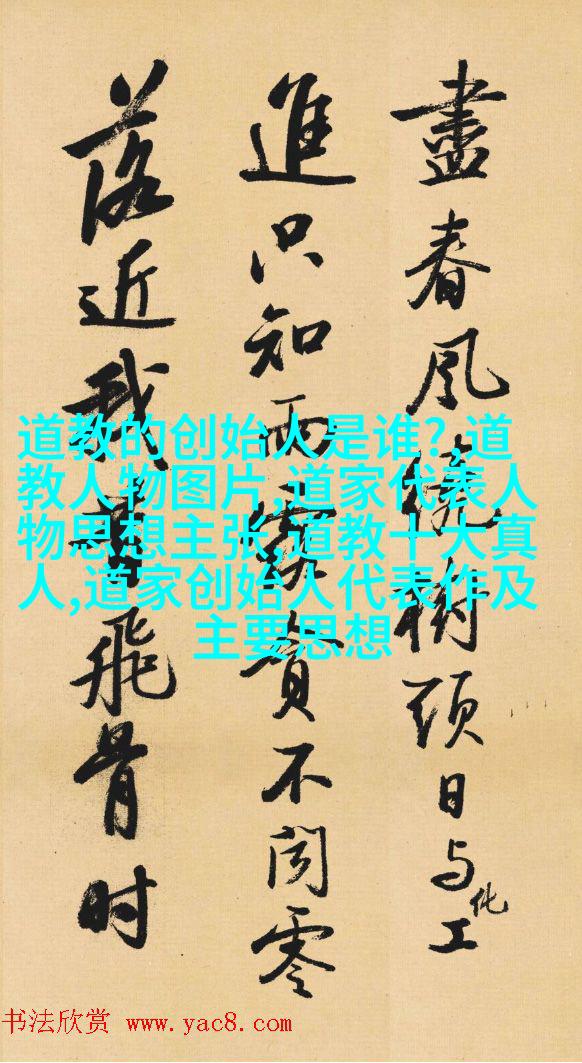 盡春風繞樹頭日与化工
進只知雨露貪不聞零
落近我昔飛骨时
道教的创始人是谁?,道
教人物图片,道家代表人
物思想主张,道教十大真
人,道家创始人代表作及
主要思想
书法欣赏 www.yac8.com